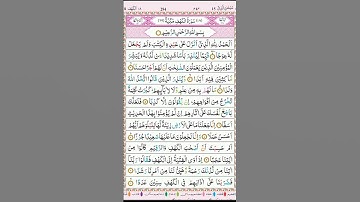 سُوْرَةُ الْكَهْفِ مَكِّيَّةٌ
بِسْمِ اللّٰهِ الرَّحْمٰنِ الرَّحِيْمِ
اَلْحَمْدُ لِلّٰهِ الَّذِيْۤ اَنْزَلَ عَلٰى عَبْدِهِ الْكِتٰبَ وَلَمْ يَجْعَلْ
لَّهٗ عِوَجًا قَيِّمًا لِّيُنْذِرَ بَاْسًا شَدِيْدًا مِّنْ لَّدُنْهُ وَيُبَشِّرَ
الْمُؤْمِنِيْنَ الَّذِيْنَ يَعْمَلُوْنَ الصّٰلِحٰتِ اَنَّ لَهُمْ اَجْرًا حَسَنًا
مَّاكِثِيْنَ فِيْهِ اَبَدًا وَّيُنْذِرَ الَّذِيْنَ قَالُوا اتَّخَذَ اللّٰهُ
وَلَدًا مَا لَهُمْ بِهٖ مِنْ عِلْمٍ وَّلَا لِاٰبَآئِهِمْ كَبُرَتْ كَلِمَةً
تَخْرُجُ مِنْ اَفْوَاهِهِمْ اِنْ يَّقُوْلُوْنَ اِلَّا كَذِبًا فَلَعَلَّكَ
بَاخِعٌ نَّفْسَكَ عَلٰۤى اٰثَارِهِمْ اِنْ لَّمْ يُؤْمِنُوْا بِهٰذَا الْحَدِيْثِ
اَسَفًا اِنَّا جَعَلْنَا مَا عَلَى الْاَرْضِ زِيْنَةً لَّهَا لِنَبْلُوَهُمْ اَيُّهُمْ
اَحْسَنُ عَمَلًا وَاِنَّا لَجٰعِلُوْنَ مَا عَلَيْهَا صَعِيْدًا جُرُزًا
اَمْ حَسِبْتَ اَنَّ اَصْحٰبَ الْكَهْفِ وَالرَّقِيْمِ كَانُوْا مِنْ
اٰيٰتِنَا عَجَبًا اِذْ اَوَى الْفِتْيَةُ اِلَى الْكَهْفِ فَقَالُوْا رَبَّنَاۤ
اٰتِنَا مِنْ لَّدُنْكَ رَحْمَةً وَّهَيِّئْ لَنَا مِنْ اَمْرِنَا رَشَدًا
فَضَرَبْنَا عَلٰۤى اٰذَانِهِمْ فِي الْكَهْفِ سِنِيْنَ عَدَدًا